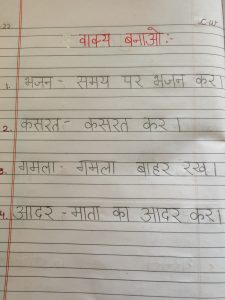 C.W
वाक्य बनाओ :-
1. भजन - समय पर भजन कर।
2. कसरत - कसरत कर।
3. गमला - गमला बाहर रख।
4. आदर - माता का आदर कर।